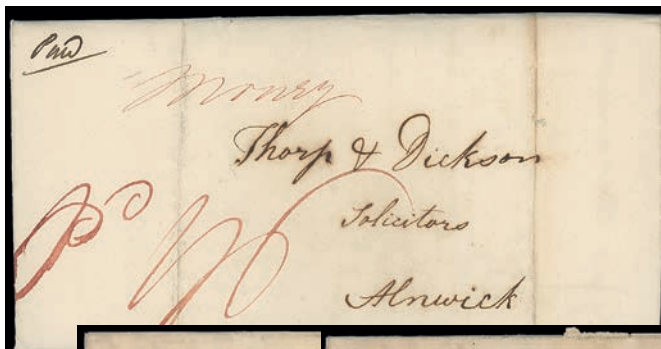 Paid
Money
Thorp & Dickson
Solicitors
Alnwick
Pd